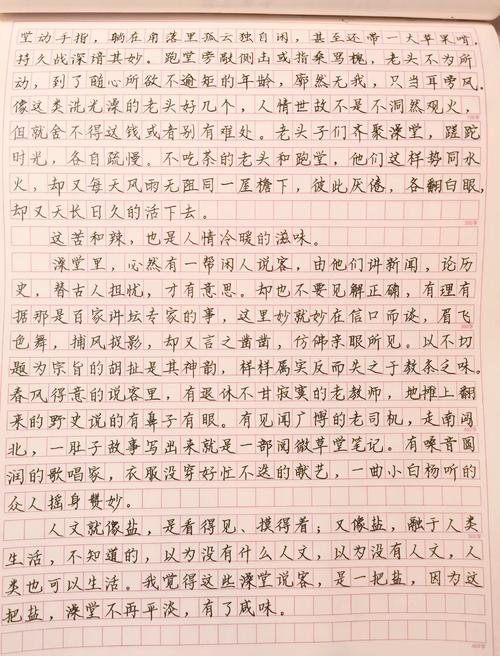 堂动手指，躺在角落里孤云独自闲，甚至还带一大苹果啃。
持久战深谙其妙。跑堂旁敲侧击或指桑骂槐，老头不为所
动，到了随心所欲不逾矩的年龄，廓然无我，只当耳旁风。
像这类洗光澡的老头好几个，人情世故不是不洞然观火，
但就舍不得这钱或者别有难处。老头子们齐聚澡堂，蹉跎
时光，各自疏慢。不吃茶的老头和跑堂，他们这样势同水
火，却又每天风雨无阻同一屋檐下，彼此厌倦，各翻白眼，
却又天长日久的活下去。
这苦和辣，也是人情冷暖的滋味。
澡堂里，必然有一帮闲人说客，由他们讲新闻，论历
史，替古人担忧，才有意思。却也不要见解正确，有理有
据那是百家讲坛专家的事，这里妙就妙在信口而谈，眉飞
色舞，捕风捉影，却又言之凿凿，仿佛亲眼所见。以不切
题为宗旨的胡扯是其神韵，样样属实反而失之于教条乏味。
春风得意的说客里，有退休不甘寂寞的老教师，地摊上翻
来的野史说的有鼻子有眼。有见闻广博的老司机，走南闯
北，一肚子故事写出来就是一部阅微草堂笔记。有嗓音圆
润的歌唱家，衣服没穿好忙不迭的献艺，一曲小白杨听的
众人摇身赞妙。
人文就像盐，是看得见、摸得着；又像盐，融于人类
生活，不知道的，以为没有什么人文，以为没有人文，人
类也可以生活。我觉得这些澡堂说客，是一把盐，因为这
把盐，澡堂不再平淡，有了咸味。